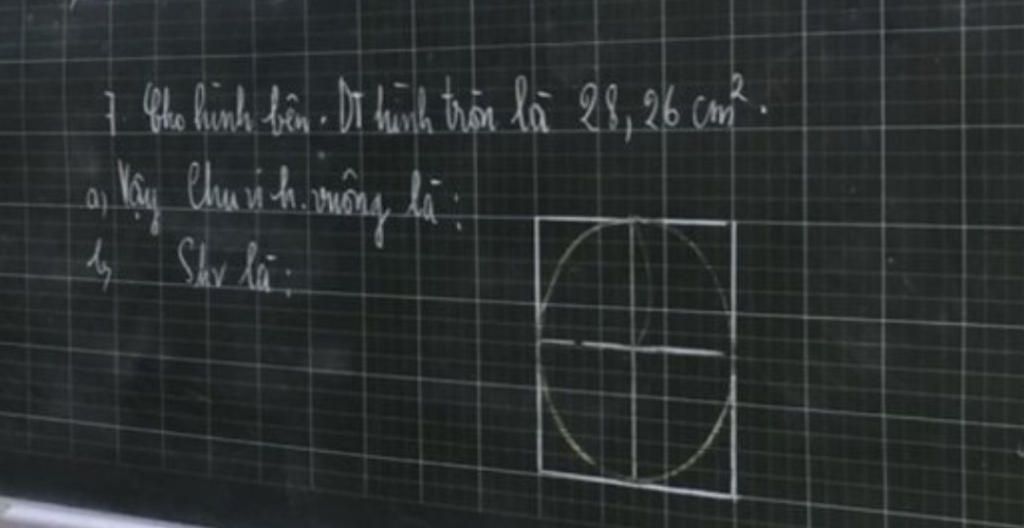 7 Cho hình bên. DT hình tròn là 28,26 cm².
a, Vậy Chu vi h. vuông là:
b, Shv là: